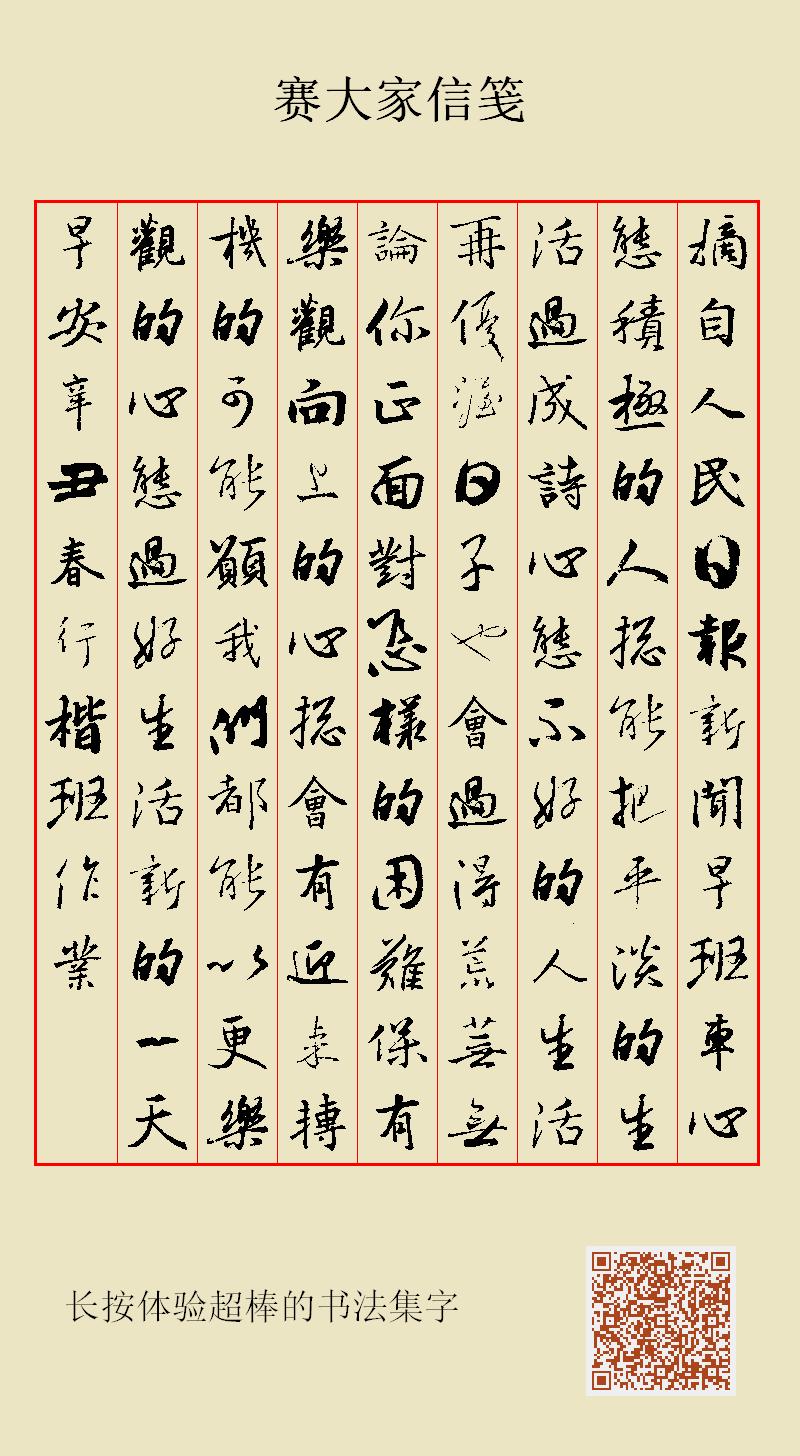 赛大家信笺
摘自人民日報新聞早班車心
態積極的人揔能把平淡的生
活過成詩心態不好的人生活
再優渥日子也會過得荒蕪無
論你正面對恐樣的困難保有
樂觀向上的心揔會有迎来摶
機的可能願我們都能以更樂
觀的心態過好生活新的一天
早安辛丑春行楷班作業
长按体验超棒的书法集字